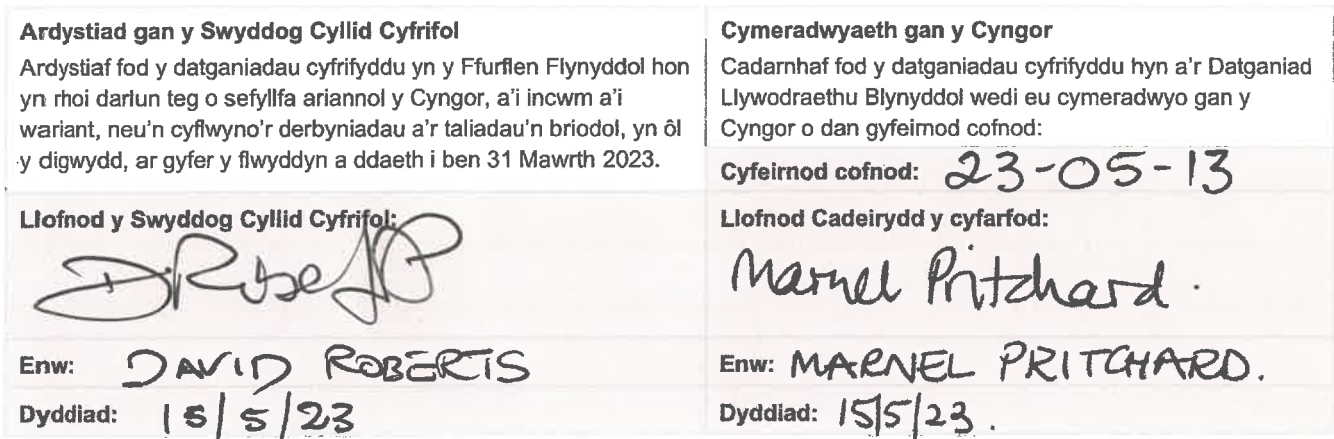 Ardystiad gan y Swyddog Cyllid Cyfrifol
Ardystiaf fod y datganiadau cyfrifyddu yn y Ffurflen Flynyddol hon
yn rhoi darlun teg o sefyllfa ariannol y Cyngor, a'i incwm a'i
wariant, neu'n cyflwyno'r derbyniadau a'r taliadau'n briodol, yn ôl
y digwydd, ar gyfer y flwyddyn a ddaeth i ben 31 Mawrth 2023.
Llofnod y Swyddog Cyllid Cyfrifol:
Enw: DAVID ROBERTS
Dyddiad: 15/5/23
Cymeradwyaeth gan y Cyngor
Cadarnhaf fod y datganiadau cyfrifyddu hyn a'r Datganiad
Llywodraethu Blynyddol wedi eu cymeradwyo gan y
Cyngor o dan gyfeirnod cofnod:
Cyfeirnod cofnod: 23-05-13
Llofnod Cadeirydd y cyfarfod:
Marnel Pritchard.
Enw: MARNEL PRITCHARD.
Dyddiad: 15/5/23.